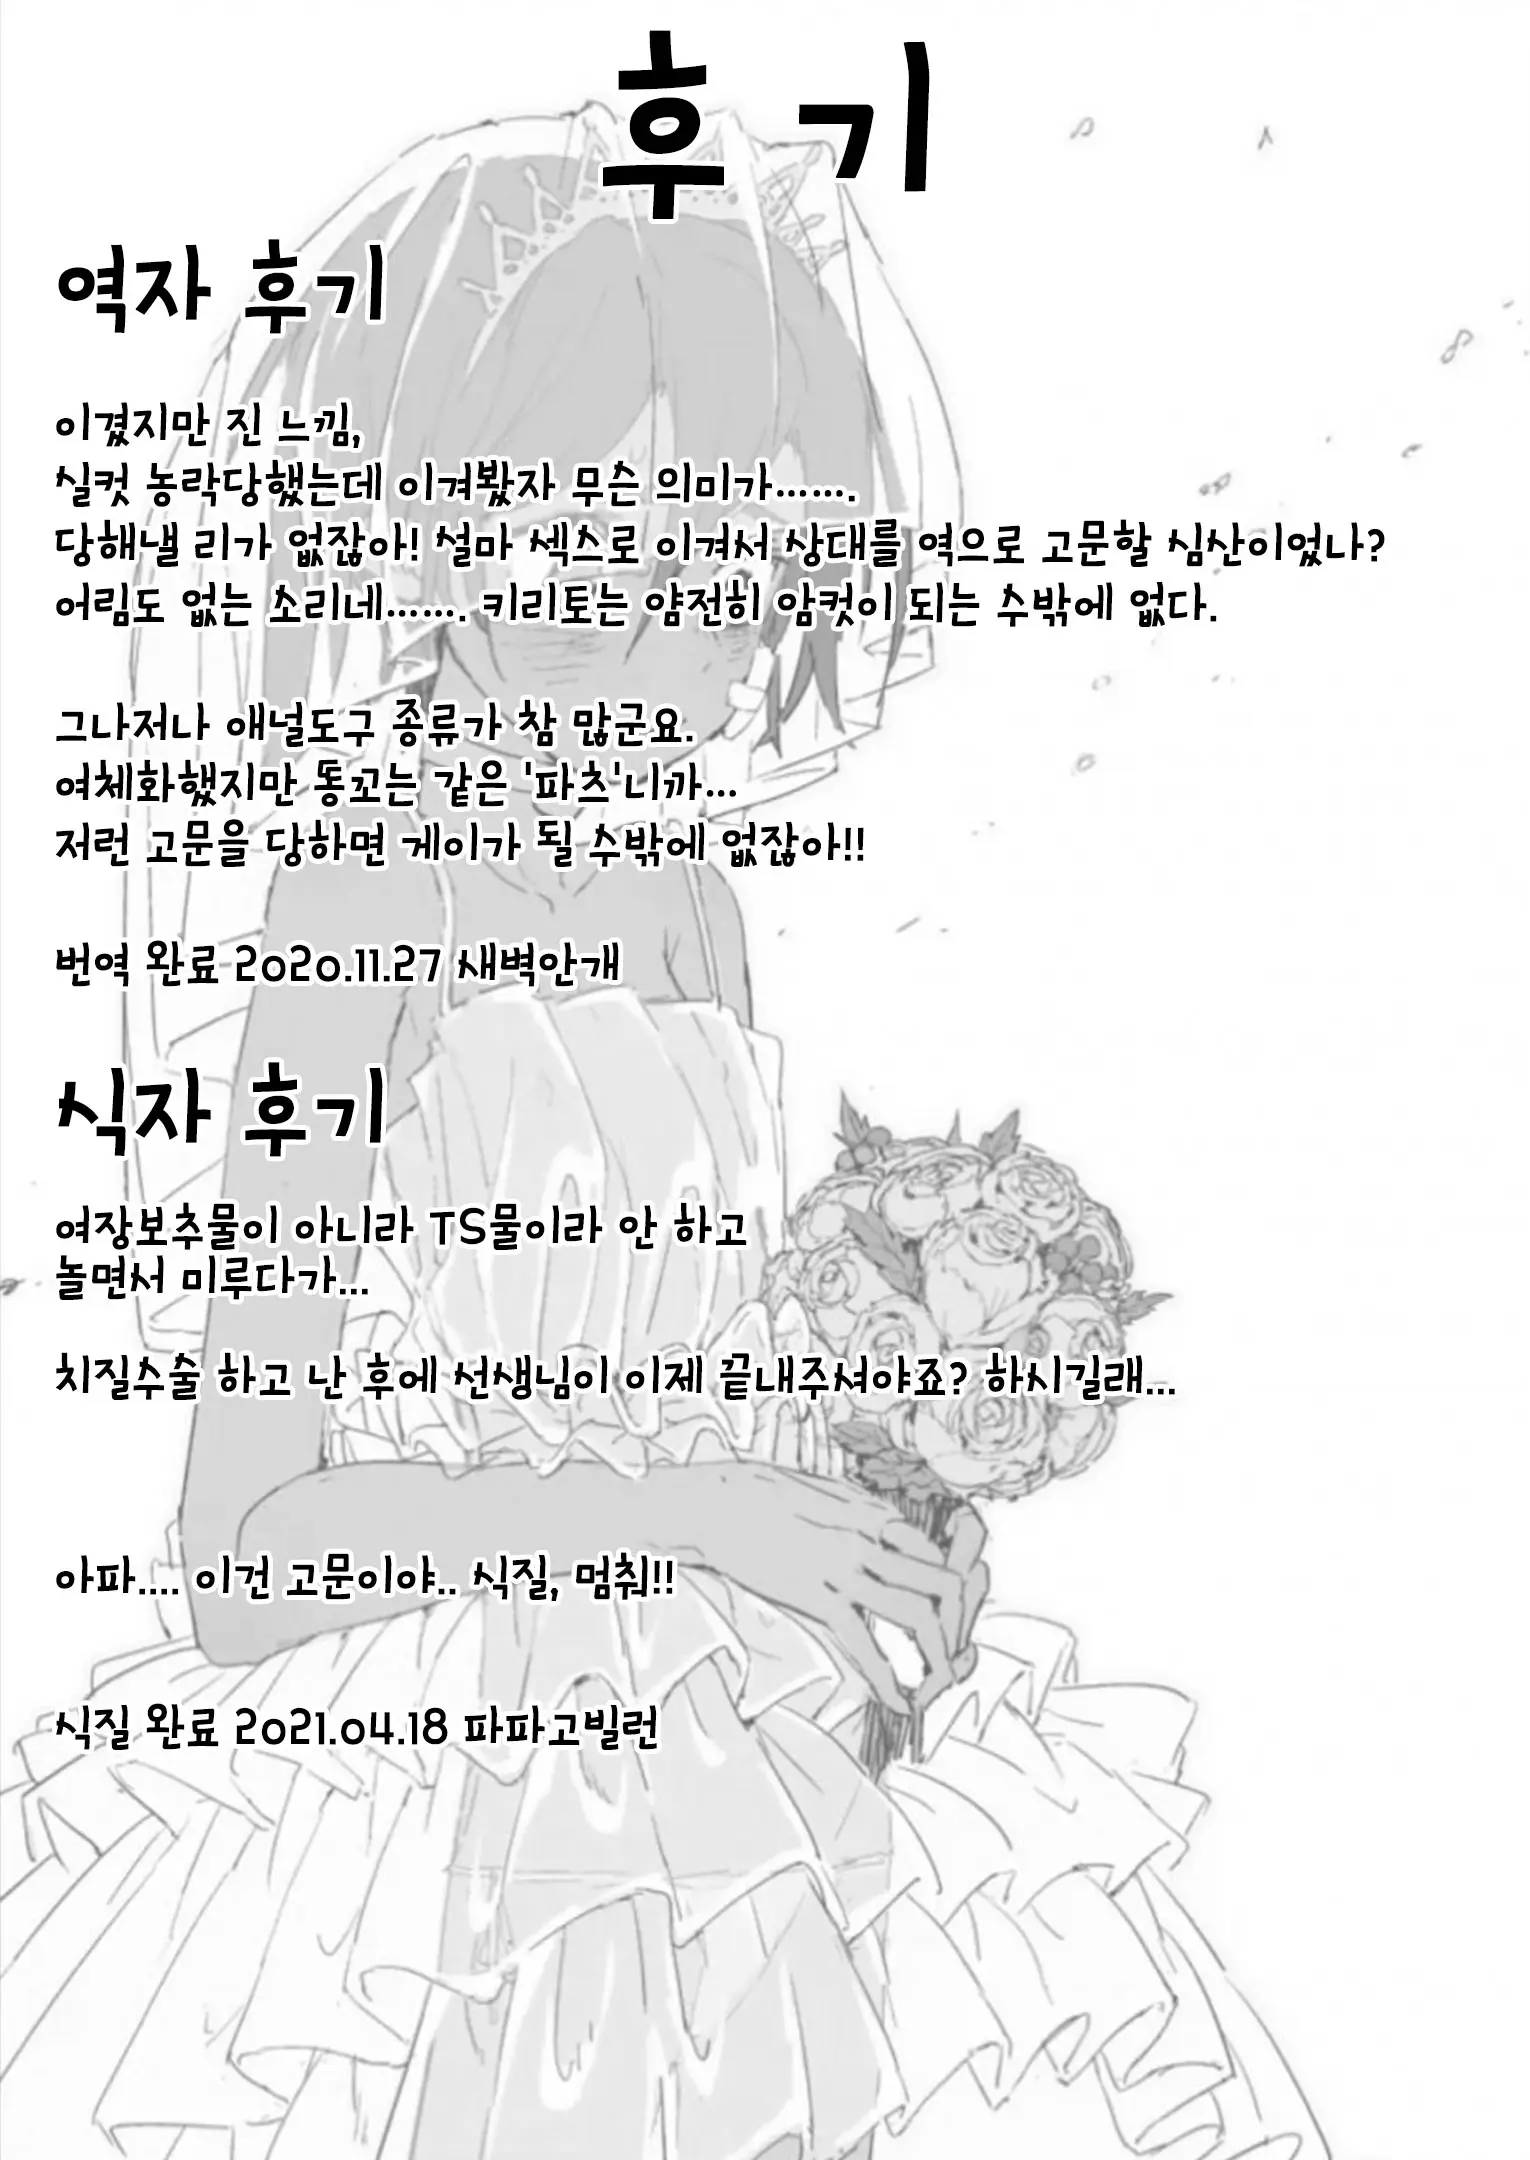 후기
역자 후기
이겼지만 진 느낌,
실컷 농락당했는데 이겨봤자 무슨 의미가…….
당해낼 리가 없잖아! 설마 섹스로 이겨서 상대를 역으로 고문할 심산이었나?
어림도 없는 소리네……. 키리토는 얌전히 암컷이 되는 수밖에 없다.
그나저나 애널도구 종류가 참 많군요.
여체화했지만 똥꼬는 같은 '파츠'니까...
저런 고문을 당하면 게이가 될 수밖에 없잖아!!
번역 완료 2020.11.27 새벽안개
식자 후기
여장보추물이 아니라 TS물이라 안 하고
놀면서 미루다가...
치질수술 하고 난 후에 선생님이 이제 끝내주셔야죠? 하시길래...
아파.... 이건 고문이야.. 식질, 멈춰!!
식질 완료 2021.04.18 파파고빌런